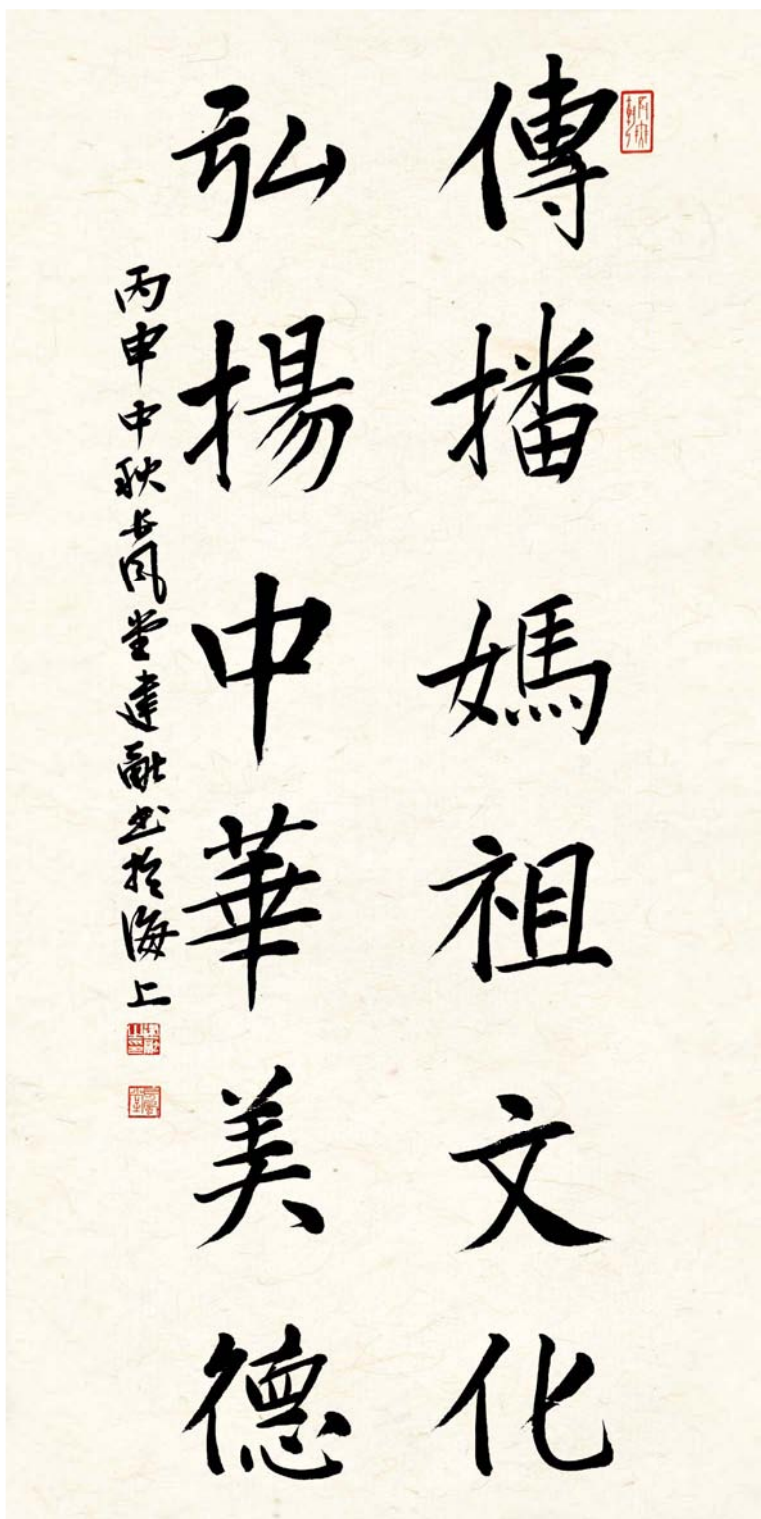 傳播媽祖文化
弘揚中華美德
丙申中秋長風堂建融书於海上